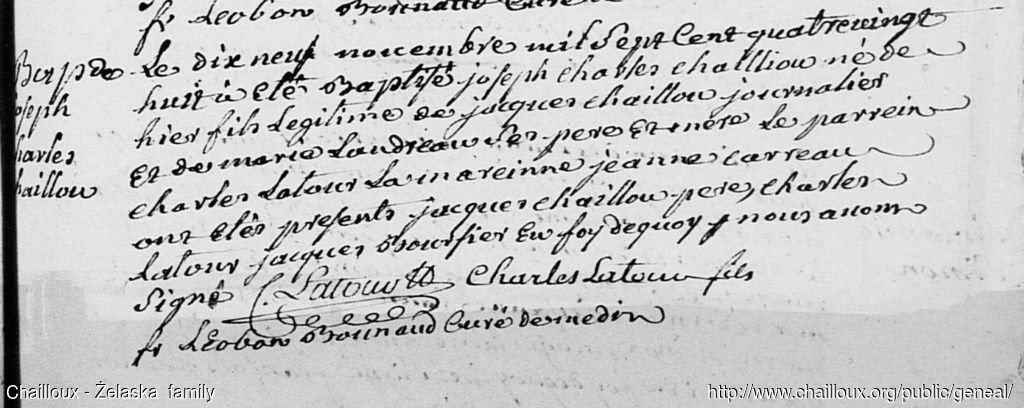 fr Leobon Bounaud Curé
Bap de
oseph
harles
haillou
Le dix neuf novembre mil Sept Cent quatrevingt
huit à etê Baptisé joseph charles chailliou né de
hier fils Legitime de jacques chaillou journalier
Et de marie Landreau Ses pere Et mère Le parrein
charles Latour La mareinne jeanne carreau
ont etês presents jacques chaillou pere, charles
Latour jacques Boursier En foy dequoy nous avons
Signé C. Latour Charles Latour fils
fr Leobon Bounaud Curé de medin
Chailloux - Želaska family
http://www.chailloux.org/public/geneal/